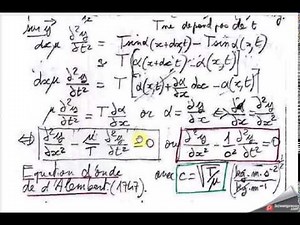 T ne dépend pas de t
dxμ ∂²y/∂t² = T sin α(x+dx,t) - T sin α(x,t)
dxμ ∂²y/∂t² ≈ T[α(x+dx,t) - α(x,t)]
dxμ ∂²y/∂t² = T[α(x,t) + ∂α/∂x dx - α(x,t)]
μ ∂²y/∂t² = T ∂α/∂x or α = ∂y/∂x
⇔ ∂²y/∂x² - μ/T ∂²y/∂t² = 0 ou ∂²y/∂x² - 1/c² ∂²y/∂t² = 0
Equation d'onde
de d'Alembert (1747) avec c = √(T/μ) (kg·m·s⁻²/kg·m⁻¹)